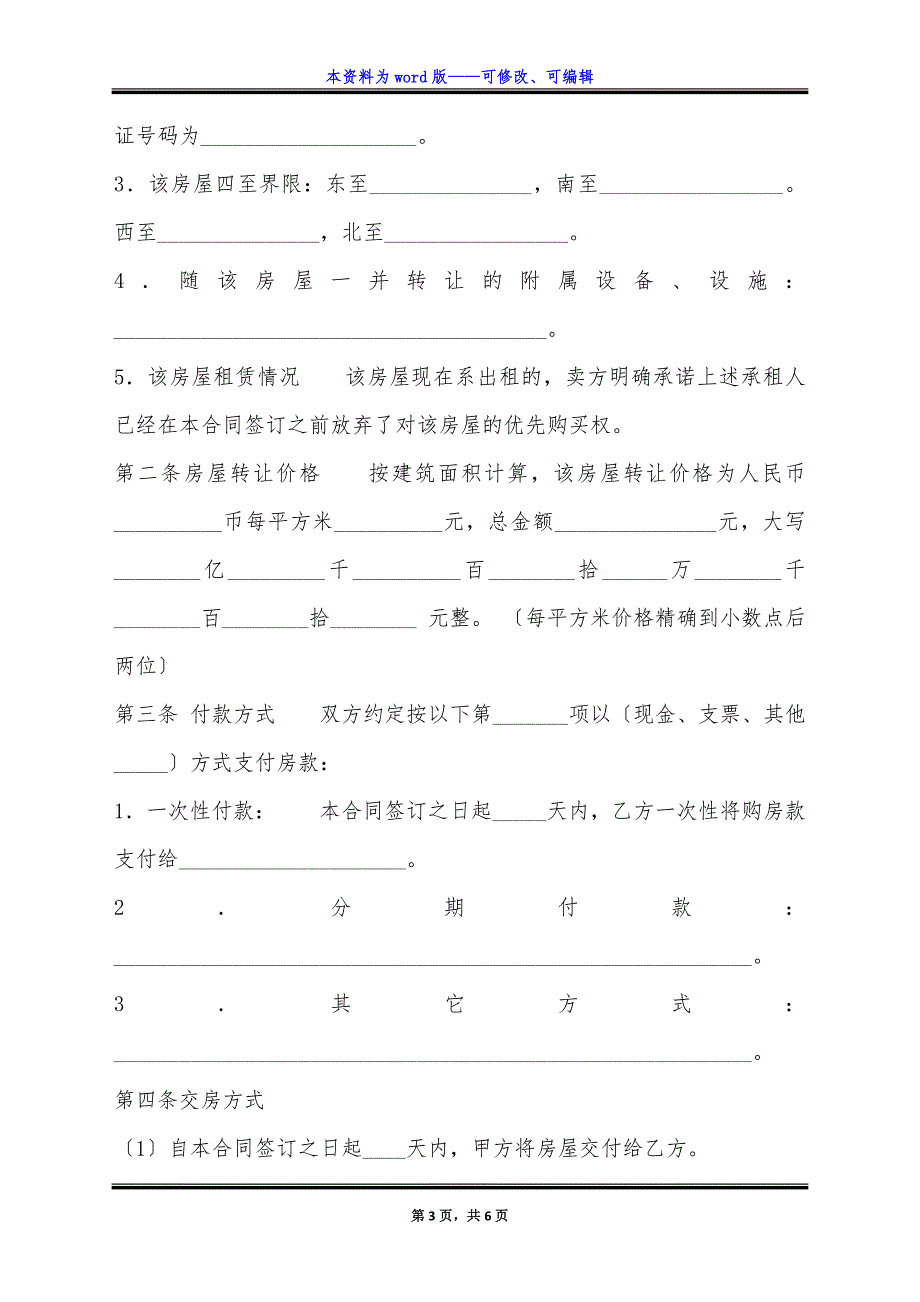 本资料为 word 版——可修改、可编辑
证号码为____________________。
3．该房屋四至界限：东至_______________，南至_________________。
西至_______________，北至_________________。
4．随该房屋一并转让的附属设备、设施：
________________________________________。
5．该房屋租赁情况　　该房屋现在系出租的，卖方明确承诺上述承租人
已经在本合同签订之前放弃了对该房屋的优先购买权。
第二条房屋转让价格　　按建筑面积计算，该房屋转让价格为人民币
__________币每平方米__________元，总金额_______________元，大写
________亿_________千__________百________拾______万________千
________百________拾________ 元整。〔每平方米价格精确到小数点后
两位〕
第三条 付款方式　　双方约定按以下第_______项以〔现金、支票、其他
_____〕方式支付房款：
1．一次性付款：　　本合同签订之日起_____天内，乙方一次性将购房款
支付给_____________________。
2．分期付款：
___________________________________________________________。
3．其它方式：
___________________________________________________________。
第四条交房方式
〔1〕自本合同签订之日起____天内，甲方将房屋交付给乙方。
第 3 页，共 6 页